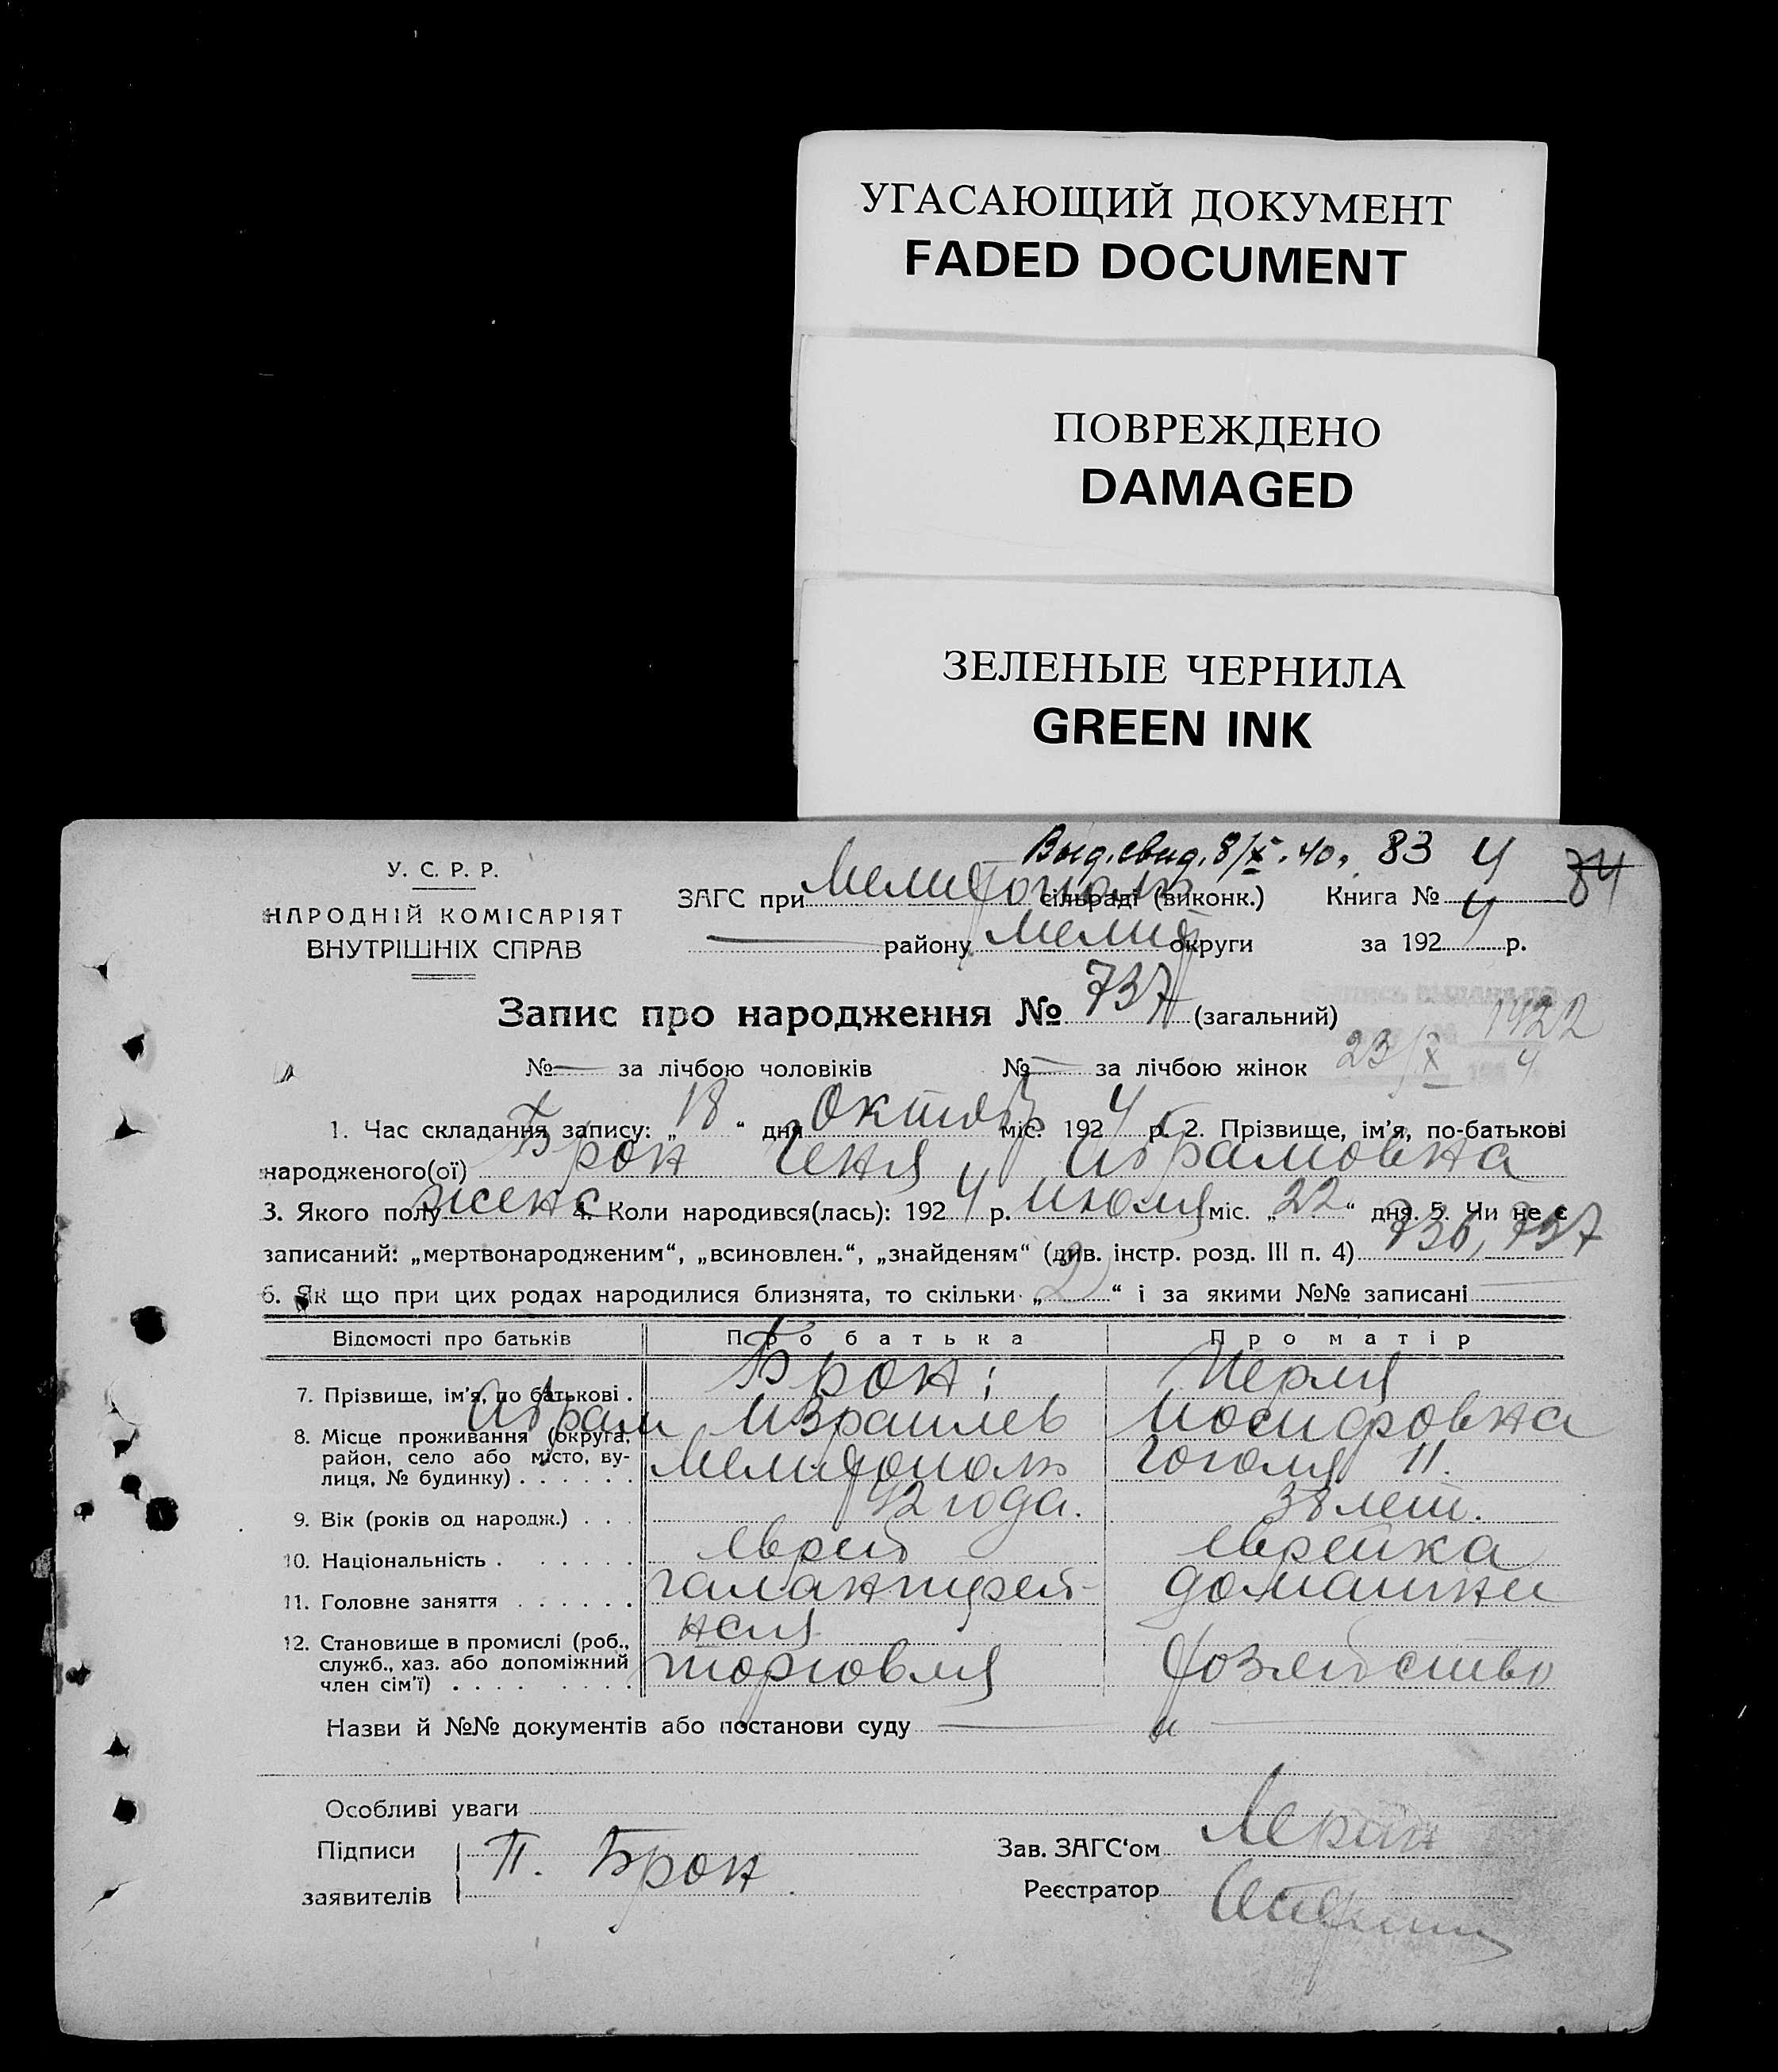 УГАСАЮЩИЙ ДОКУМЕНТ
FADED DOCUMENT
ПОВРЕЖДЕНО
DAMAGED
ЗЕЛЕНЫЕ ЧЕРНИЛА
GREEN INK
Выд. свид. 8/X. 40. 83 4 84
У. С. Р. Р.
НАРОДНІЙ КОМІСАРІЯТ
ВНУТРІШНІХ СПРАВ
ЗАГС при Мелитополь сільраді (виконк.) Книга № 4
району Мелит округи за 1924 р.
Запис про народження № 737 (загальний)
1922
№ — за лічбою чоловіків № — за лічбою жінок 23/X 4
1. Час складання запису: „18“ дня Октяб міс. 1924 р. 2. Прізвище, ім'я, по-батькові
народженого(ої) Брон Геня Абрамовна
3. Якого полу женс 4. Коли народився(лась): 1924 р. июля міс. „22“ дня. 5. Чи не є
записаний: „мертвонародженим“, „всиновлен.“, „знайденям“ (див. інстр. розд. III п. 4) 736, 737
6. Як що при цих родах народилися близнята, то скільки „2“ і за якими №№ записані
Відомості про батьків Про батька Про матір
7. Прізвище, ім'я, по батькові . Брон; Перля
Абрам Израилев Иосифовна
8. Місце проживання (округа, район, село або місто, вулиця, № будинку) . . . . . . Мелитополь Гоголя 11.
9. Вік (років од народж.) . . . 42 года. 38 лет.
10. Національність . . . . . . еврей еврейка
11. Головне заняття . . . . . . галантерей- домашне
ная
12. Становище в промислі (роб., служб., хаз. або допоміжний член сім'ї) . . . . . . . . торговля хозяйство
Назви й №№ документів або постанови суду — " —
Особливі уваги
Підписи заявителів П. Брон
Зав. ЗАГС'ом
Реєстратор